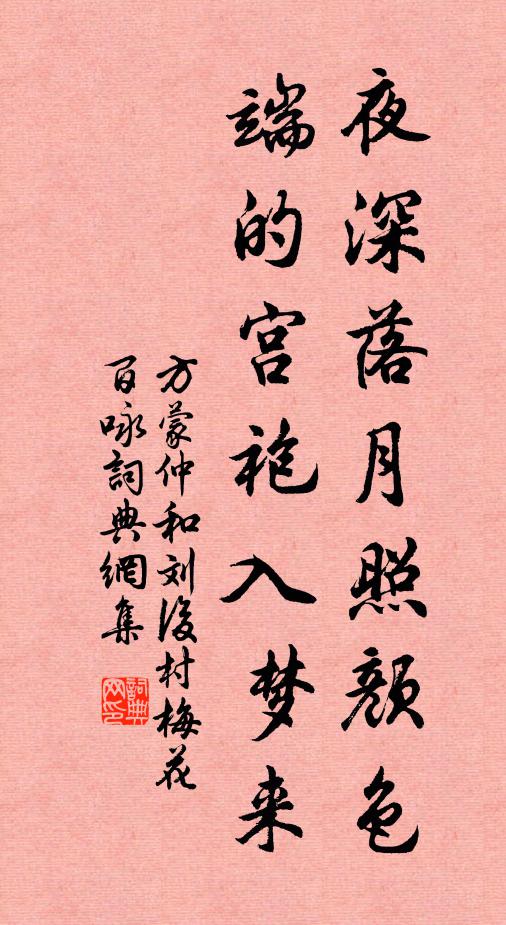 夜深落月照颜色
端的宫袍入梦来
方蒙仲和刘后村梅花
百咏词典網集
詞典
网印